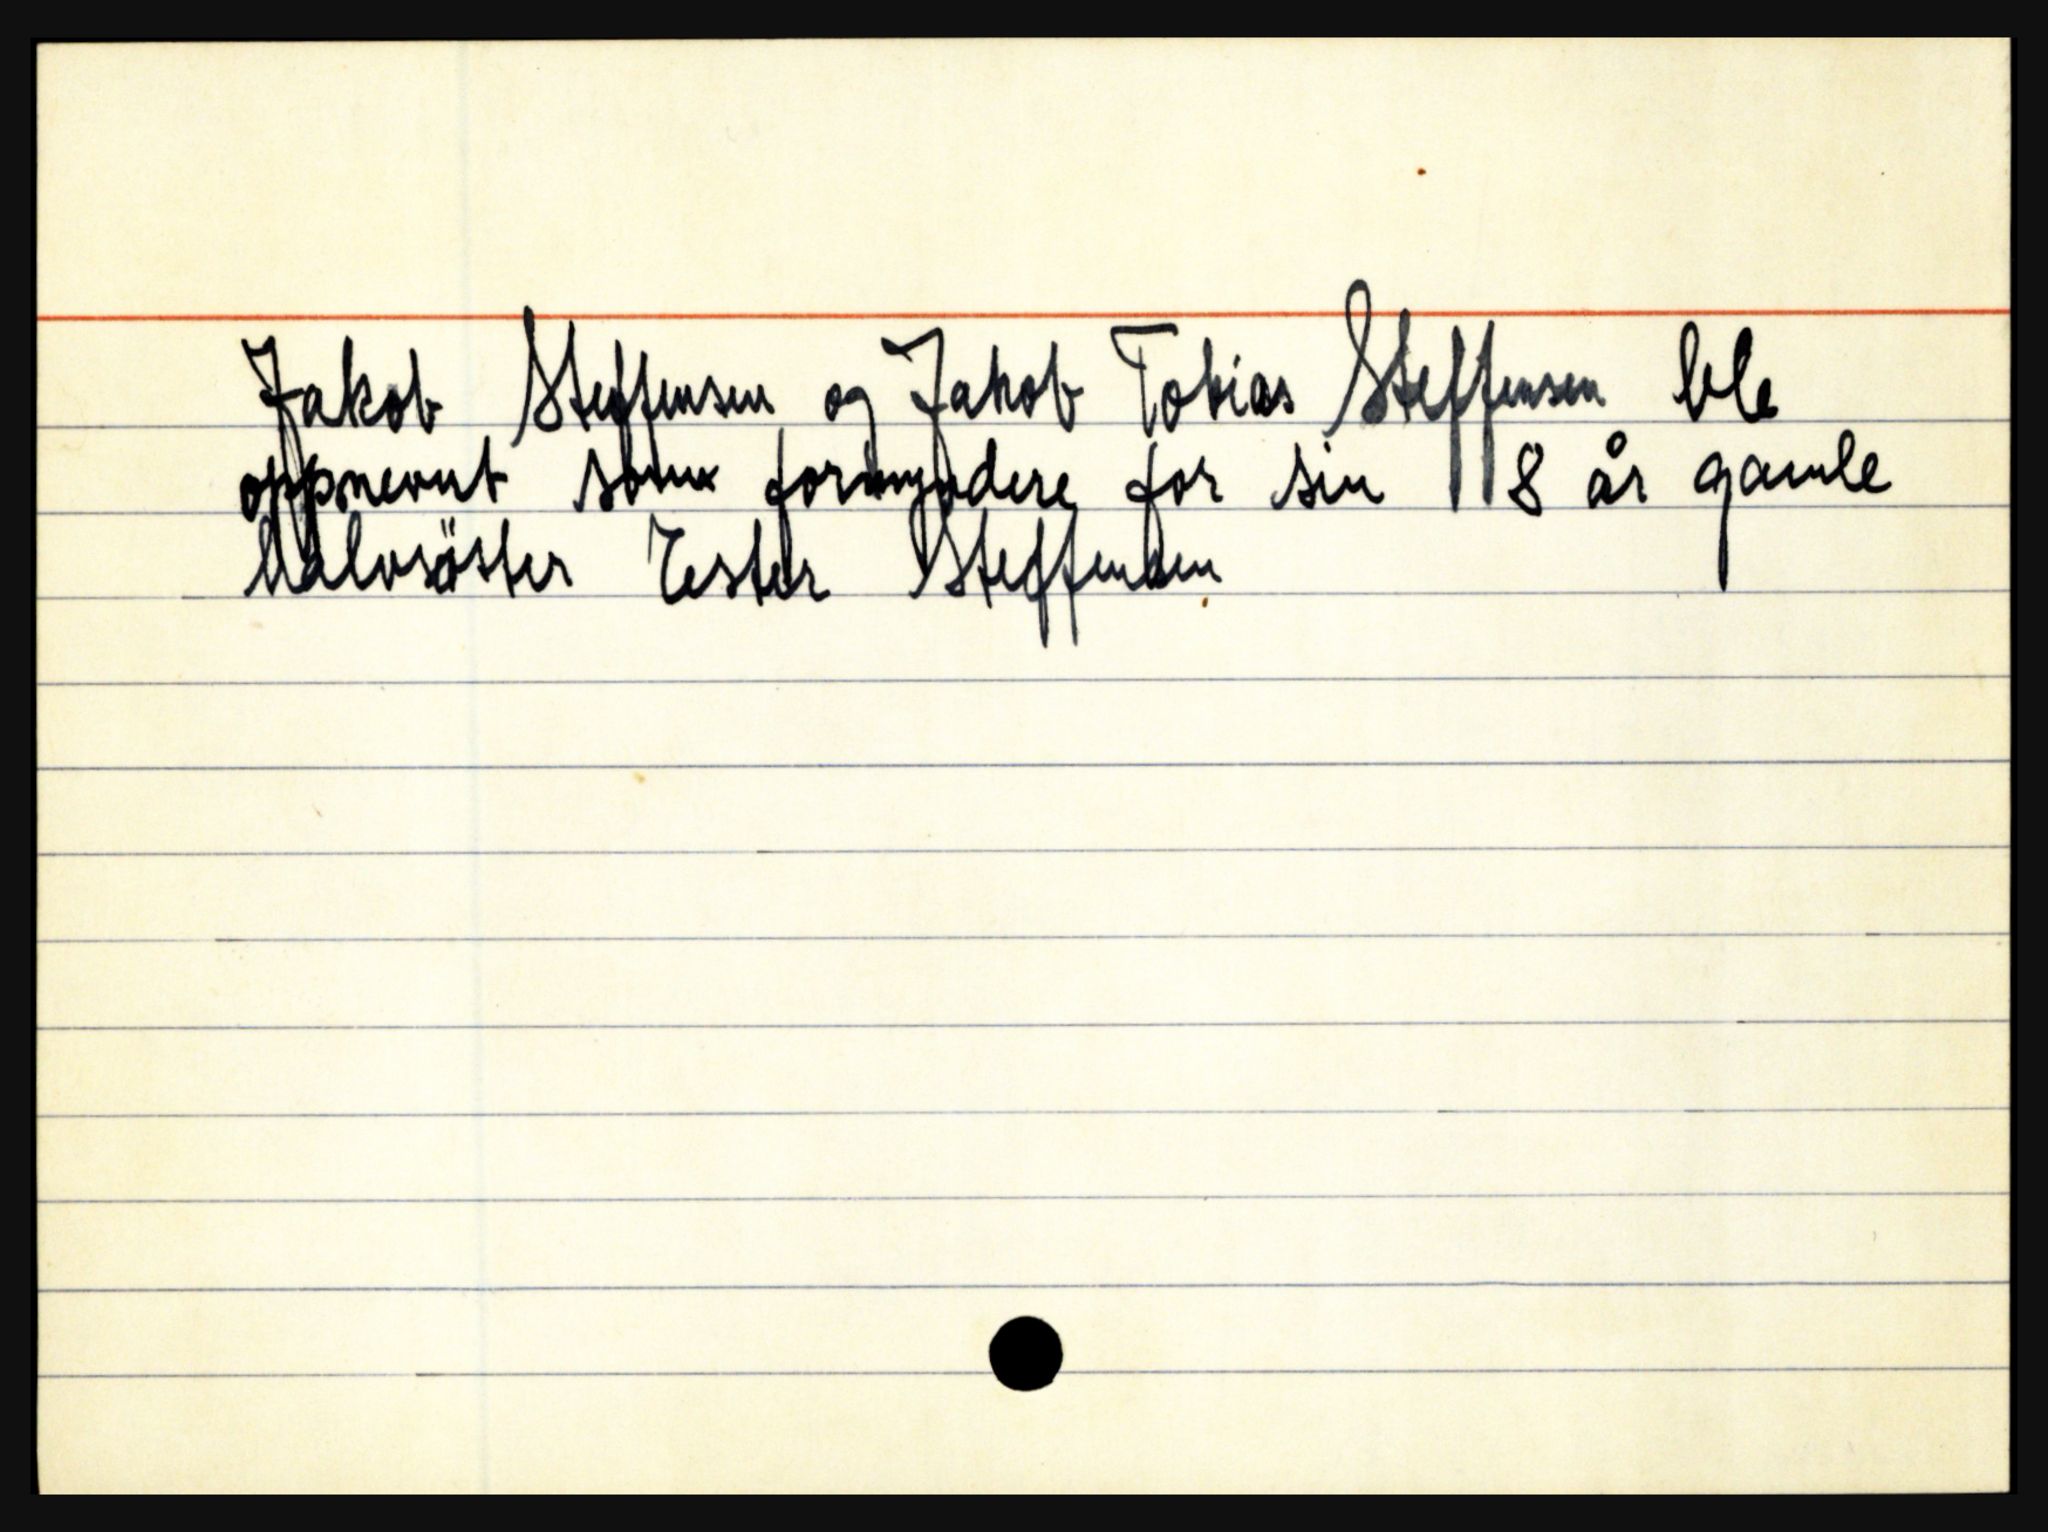 Jakob Steffensen og Jakob Tobias Steffensen ble
oppnevnt som formyndere for sin 8 år gamle
halvsöster Ester Steffensen